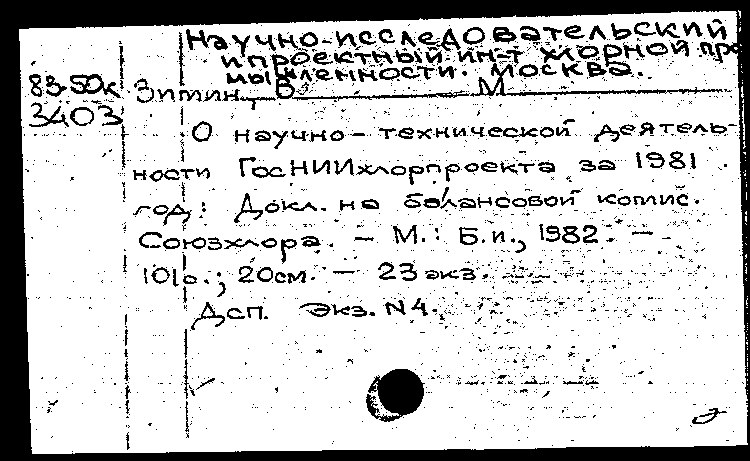 Научно-исследовательский
и проектный ин-т хлорной про
мышленности. Москва.
83-50к Зимин, В М
3403
О научно-технической деятель-
ности ГосНИИхлорпроекта за 1981
год: Докл. на балансовой комис.
Союзхлора. — М.: Б.и., 1982. —
101с.; 20см. — 23 экз.
Дсп. Экз. N4.